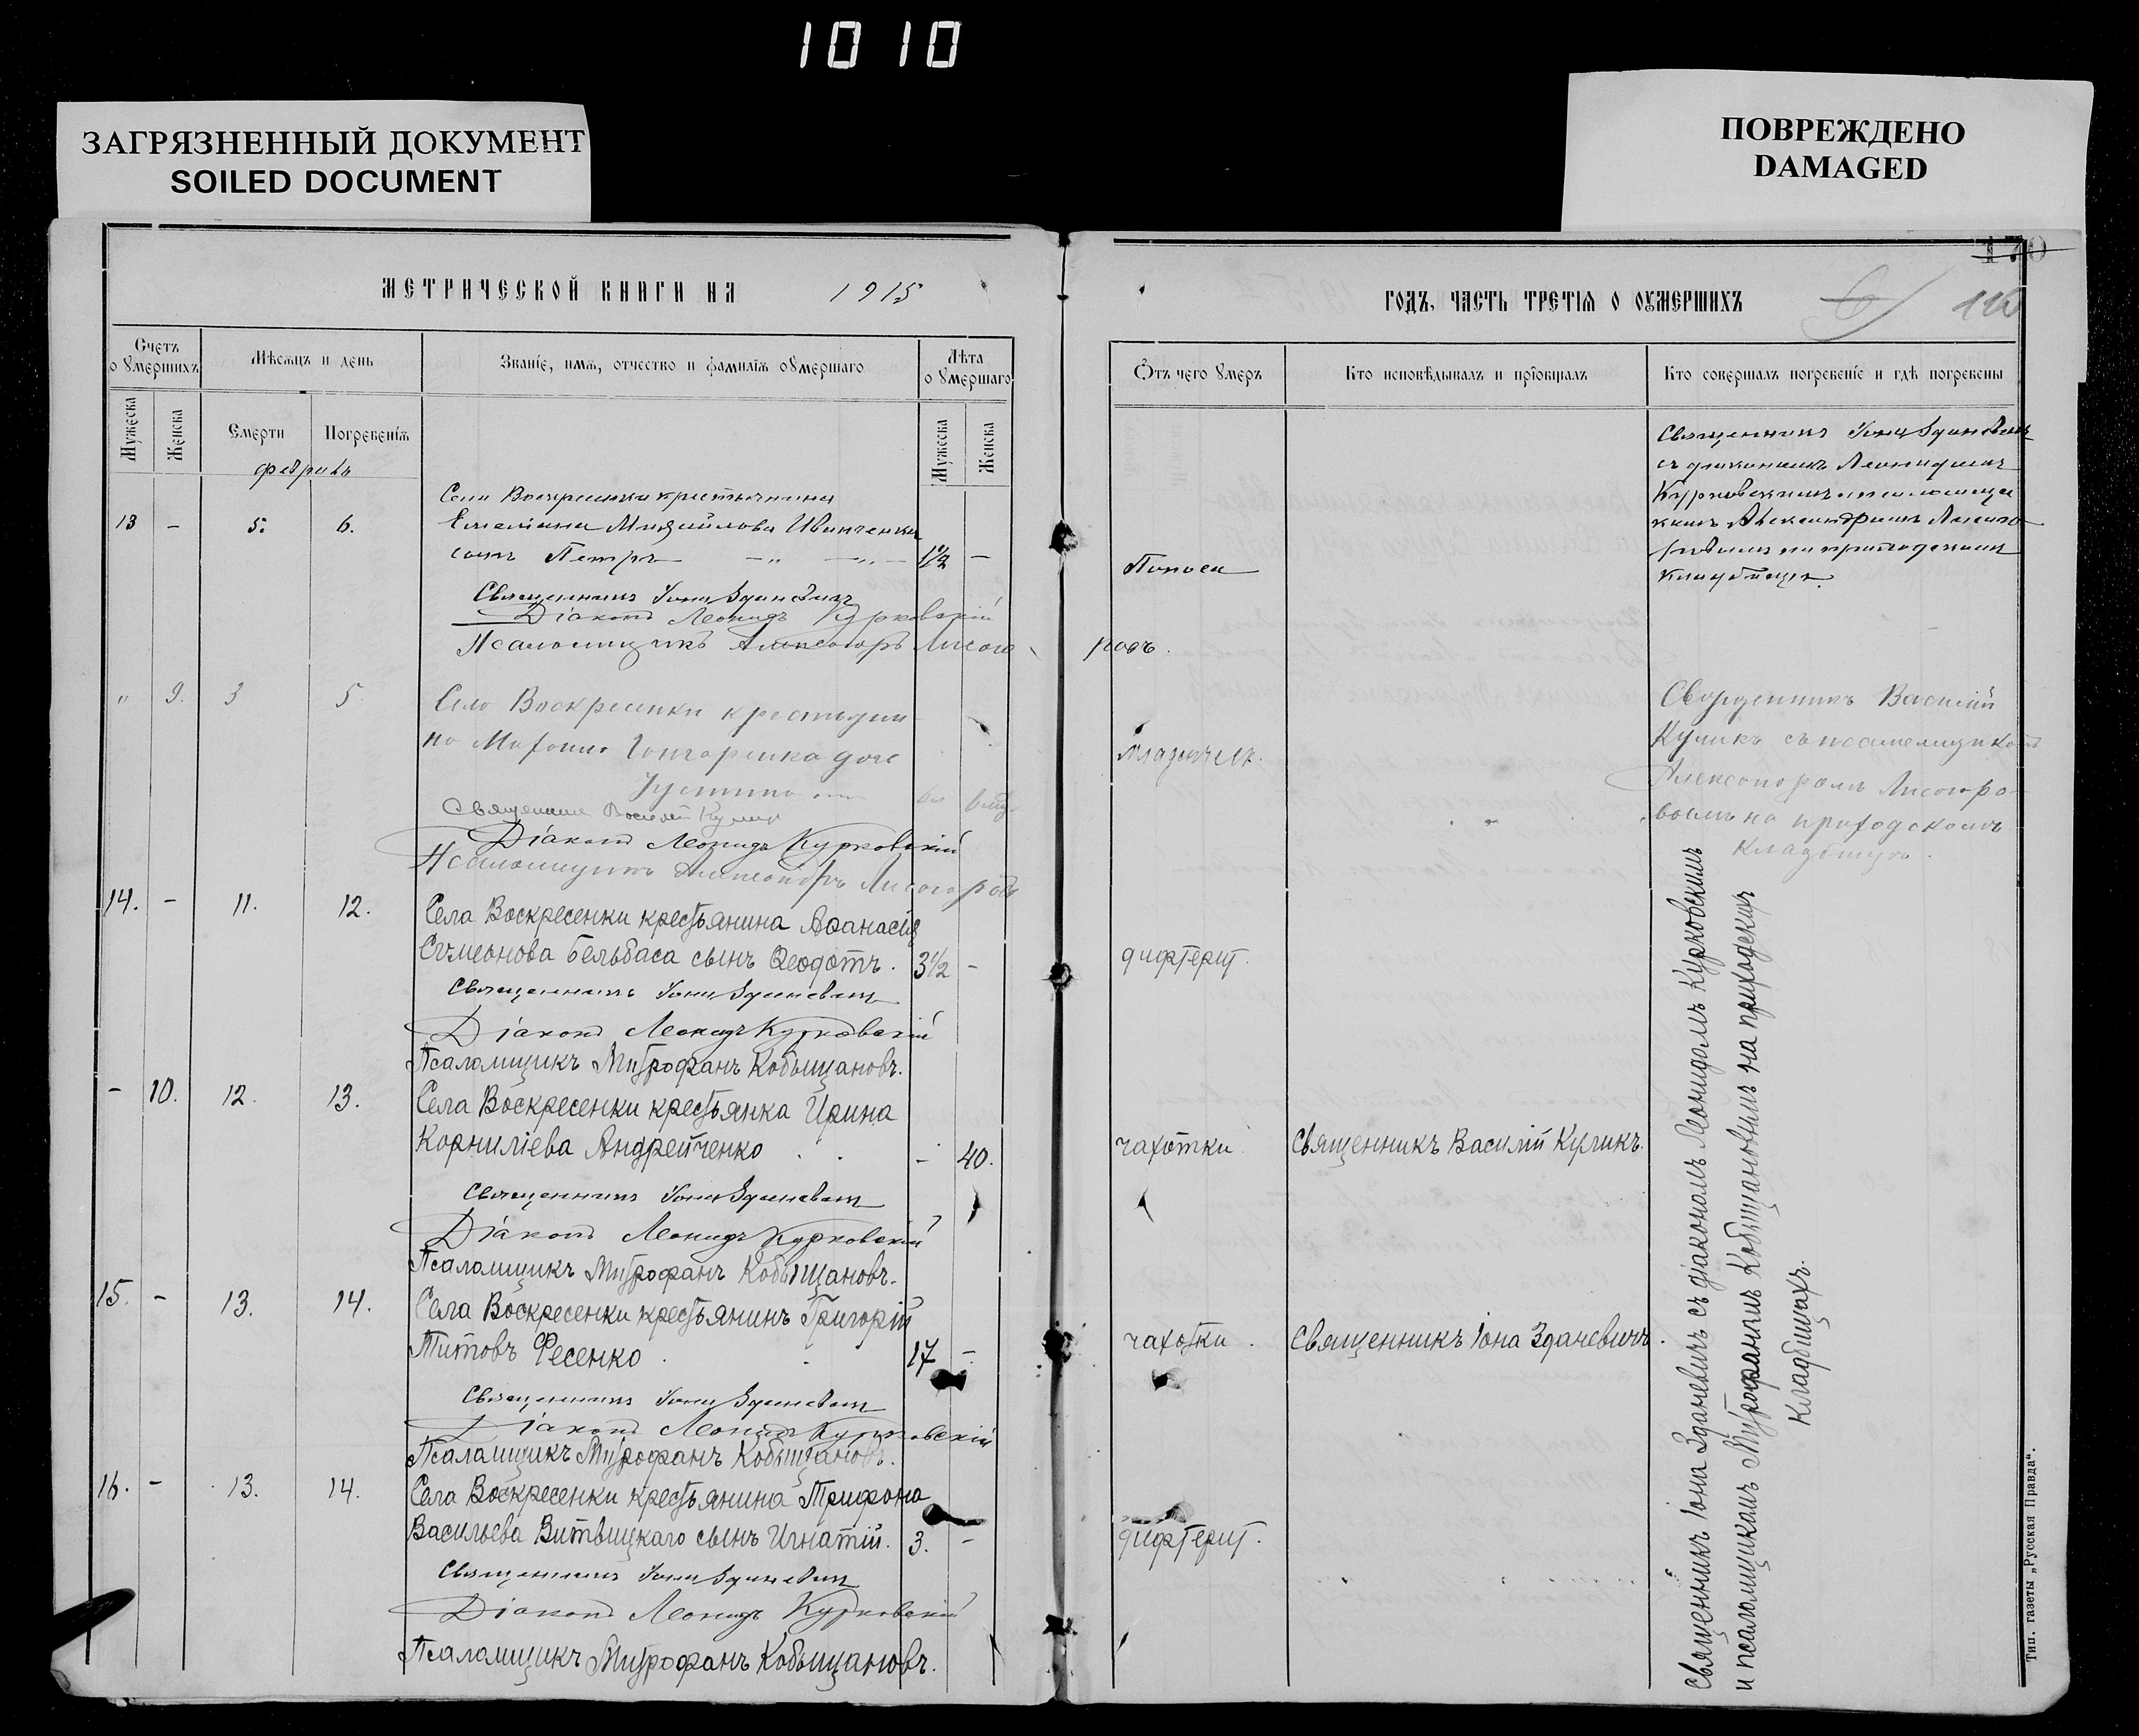 1010
ЗАГРЯЗНЕННЫЙ ДОКУМЕНТ
SOILED DOCUMENT
ПОВРЕЖДЕНО
DAMAGED
170
МЕТРИЧЕСКОЙ КНИГИ НА 1915
ГОДЪ, ЧАСТЬ ТРЕТІѦ О ОУМЕРШИХЪ
Счетъ о умершихъ
Мѣсѧцъ и день
Званіе, имѧ, отчество и фамиліѧ оумершаго
Лѣта оумершаго
Отъ чего умеръ
Кто исповѣдывалъ и пріобщалъ
Кто совершалъ погребеніе и гдѣ погребены
Мужеска
Женска
Смерти
Погребеніѧ
Мужеска
Женска
февраль
13 - 5. 6.
Села Воскресенки крестьянина
Емеліана Михайлова Иванченка
сынъ Петръ 1 1/2 -
Поноса
Священникъ Іона Зданевичъ
съ діакономъ Леонидомъ
Курковскимъ и псаломщи
комъ Александромъ Лисого
ровымъ на приходскомъ
кладбищѣ.
Священникъ Іона Зданевичъ
Діаконъ Леонидъ Курковскій
Псаломщикъ Александръ Лисого
ровъ.
" 9. 3 5.
Село Воскресенки крестьяни
на Гончаренка доч
Устина
младенческ.
Священникъ Василій
Куликъ съ псаломщикомъ
Александромъ Лисогоро
вымъ на приходскомъ
кладбищѣ.
Священникъ Василій Куликъ
Діаконъ Леонидъ Курковскій
Псаломщикъ Александръ Лисогоровъ
14. - 11. 12.
Села Воскресенки крестьянина Аѳанасія
Сѵмеонова Бельбаса сынъ Ѳеодотъ. 3 1/2 -
дифтерит.
Священникъ Іона Зданевичъ
Діаконъ Леонидъ Курковскій
Псаломщикъ Митрофанъ Кобыщановъ.
- 10. 12. 13.
Села Воскресенки крестьянка Ирина
Корниліева Андрейченко - 40.
чахотки
Священникъ Василій Куликъ.
Священникъ Іона Зданевичъ
Діаконъ Леонидъ Курковскій
Псаломщикъ Митрофанъ Кобыщановъ.
15. - 13. 14.
Села Воскресенки крестьянинъ Григорій
Титовъ Фесенко 17 -
чахотки.
Священникъ Іона Зданевичъ.
Священникъ Іона Зданевичъ
Діаконъ Леонидъ Курковскій
Псаломщикъ Митрофанъ Кобыщановъ.
16. - 13. 14.
Села Воскресенки крестьянина Трифона
Васильева Витвицкаго сынъ Игнатій. 3. -
дифтерит.
Священникъ Іона Зданевичъ
Діаконъ Леонидъ Курковскій
Псаломщикъ Митрофанъ Кобыщановъ.
Священникъ Іона Зданевичъ съ діакономъ Леонидомъ Курковскимъ
и псаломщикомъ Митрофаномъ Кобыщановымъ на приходскихъ
кладбищахъ.
Тип. газеты „Русская Правда“.